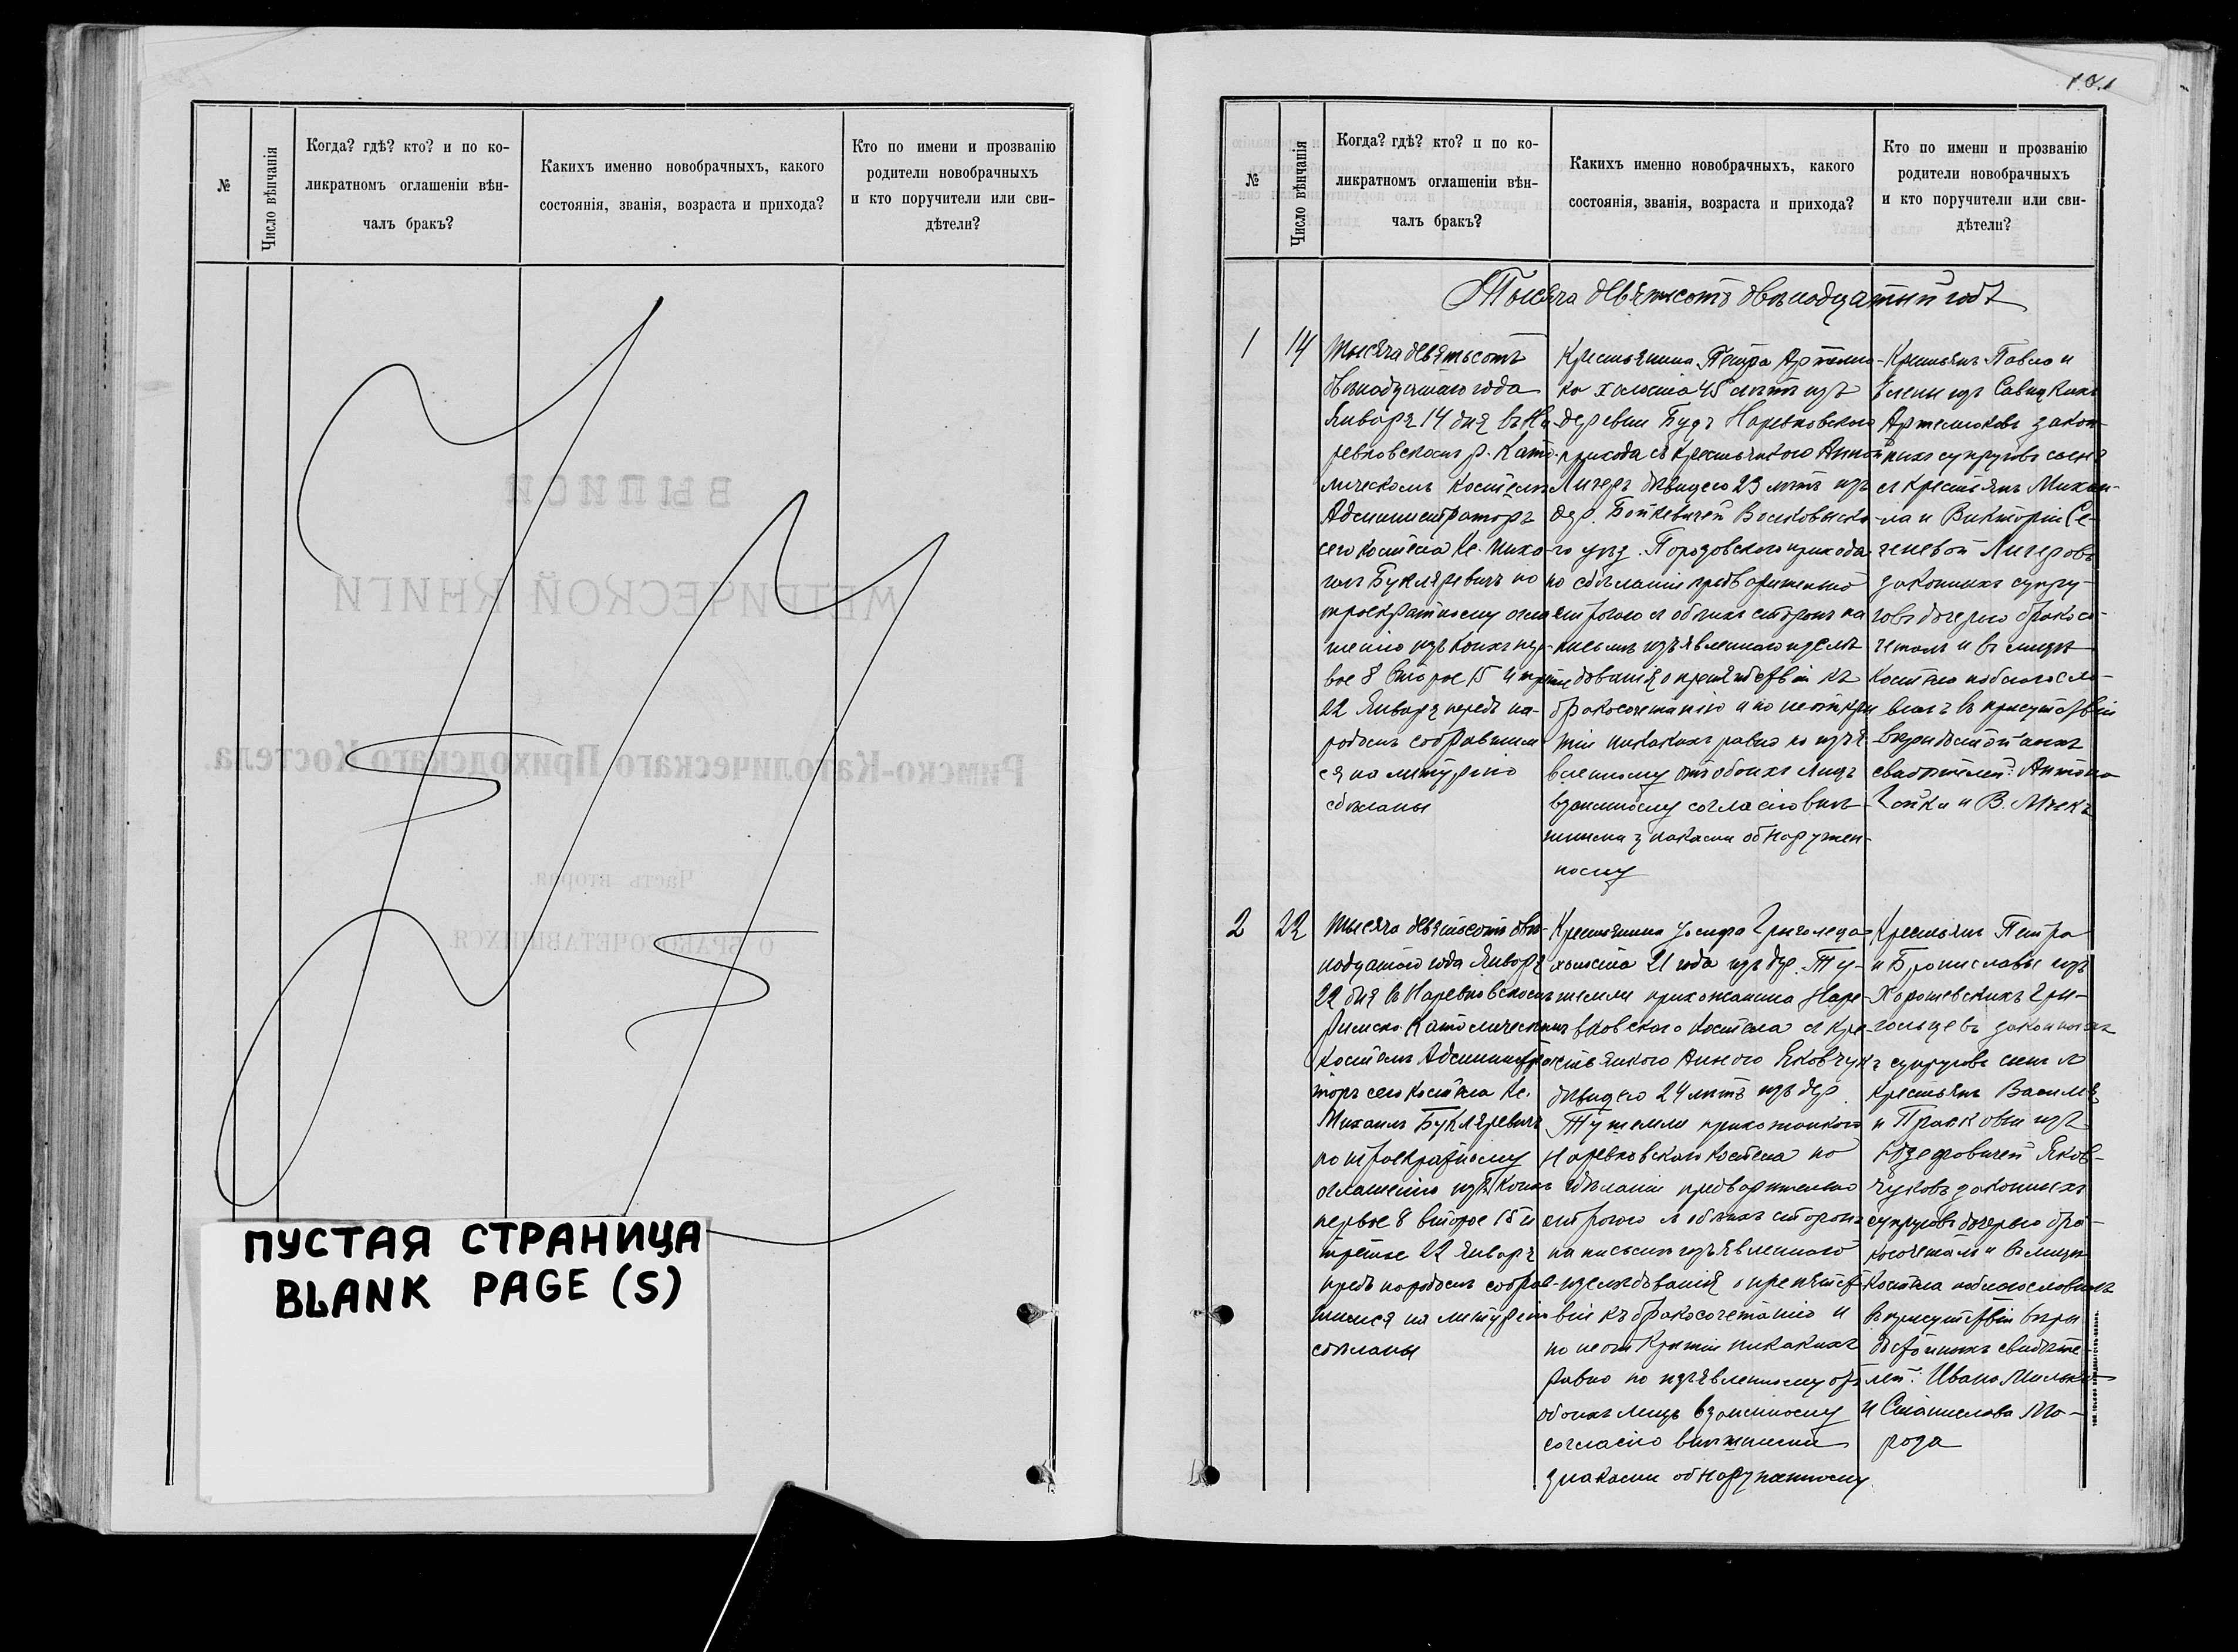 №
Число вѣнчанія
Когда? гдѣ? кто? и по ко-
ликратномъ оглашеніи вѣн-
чалъ бракъ?
Какихъ именно новобрачныхъ, какого
состоянія, званія, возраста и прихода?
Кто по имени и прозванію
родители новобрачныхъ
и кто поручители или сви-
дѣтели?
ВЫПИСИ
МЕТРИЧЕСКОЙ КНИГИ
Римско-Католическаго Приходскаго Костела.
Часть вторая.
О БРАКОСОЧЕТАВШИХСЯ.
ПУСТАЯ СТРАНИЦА
BLANK PAGE (S)
№
Число вѣнчанія
Когда? гдѣ? кто? и по ко-
ликратномъ оглашеніи вѣн-
чалъ бракъ?
Какихъ именно новобрачныхъ, какого
состоянія, званія, возраста и прихода?
Кто по имени и прозванію
родители новобрачныхъ
и кто поручители или сви-
дѣтели?
Тысяча девятьсотъ двѣнадцатый годъ
1
14
Тысяча девятьсотъ
двѣнадцатаго года
Января 14 дня въ На-
ревковскомъ р. Като-
лическомъ Костелѣ
Администраторъ
сего костела Кс. Миха-
илъ Букляревичъ по
троекратному огла-
шенію изъ коихъ пер-
вое 8 второе 15 и третье
22 Января передъ на-
родомъ собравшим-
ся на литургію
сдѣланы
Крестьянина Петра Артемю-
ка холоста 45 лѣтъ изъ
деревни Будъ Наревковскаго
прихода съ крестьянкою Анной
Личеръ дѣвицею 23 лѣтъ изъ
дер. Бойкевичей Волковыска-
го уѣз. Порозовскаго прихода
по сдѣланіи предварительно
строгаго съ обѣихъ сторонъ на
письмѣ изъявленнаго изслѣ-
дованія о препятствіи къ
бракосочетанію и по неоткры
тіи никакихъ равно по изъя
вленному отъ обоихъ лицъ
взаимному согласію внѣ-
шними знаками обнаружен-
ному
Крестьянъ Павла и
Елены изъ Савицкихъ
Артемюковъ закон-
ныхъ супруговъ сына
съ крестьянъ Миха-
ила и Викторіи Се-
геневой Личеровъ
законныхъ супру-
говъ дочерью бракосо-
четалъ и въ лицѣ
Костела поблагосло-
вилъ въ присутствіи
вѣридостойныхъ
свидѣтелей: Антона
Гойки и В. Мѣекъ
2
22
Тысяча девятьсотъ двѣ-
надцатаго года Января
22 дня въ Наревковскомъ
Римско-Католическомъ
Костелѣ Администра-
торъ сего Костела Кс.
Михаилъ Букляревичъ
по троекратному
оглашенію изъ коихъ
первое 8 второе 15 и
третье 22 Января
предъ народомъ собрав-
шимся на литургію
сдѣланы
Крестьянина Іосифа Григолеца
холоста 21 года изъ дер. Ту-
шемли прихожанина Наре-
вковскаго Костела съ кре-
стьянкою Анною Яковчукъ
дѣвицею 24 лѣтъ изъ дер.
Тушемли прихожанкою
Наревковскаго костела по
сдѣланіи предварительно
строгаго съ обѣихъ сторонъ
на письмѣ изъявленнаго
изслѣдованія о препятст-
віи къ бракосочетанію и
по неоткрытіи никакихъ
равно по изъявленному отъ
обоихъ лицъ взаимному
согласію внѣшними
знаками обнаруженному
Крестьянъ Петра
и Брониславы изъ
Хорошевскихъ Гри-
гольцевъ законныхъ
супруговъ сына съ
крестьянъ Василія
и Прасковіи изъ
Яков-
чуковъ законныхъ
супруговъ дочерью бра-
косочеталъ и въ лицѣ
Костела поблагословилъ
въ присутствіи вѣри
достойныхъ свидѣте-
лей: Ивана
и Станислава Мо-
роза